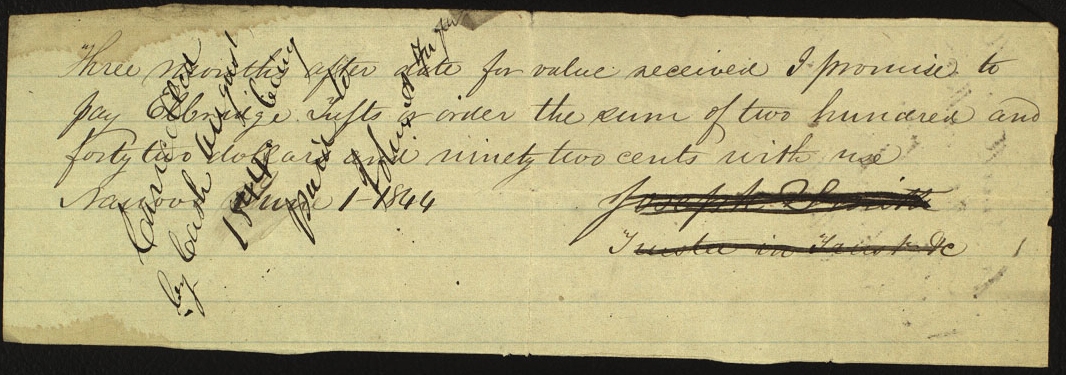 Three months after date for value received I promise to
pay Elbridge Tufts or order the sum of two hundred and
forty two dollars and ninety two cents with use
Nauvoo June 1 - 1844
Joseph Smith
Trustee in Trust &c
Cancelled
by Cash August
1844 being
paid to